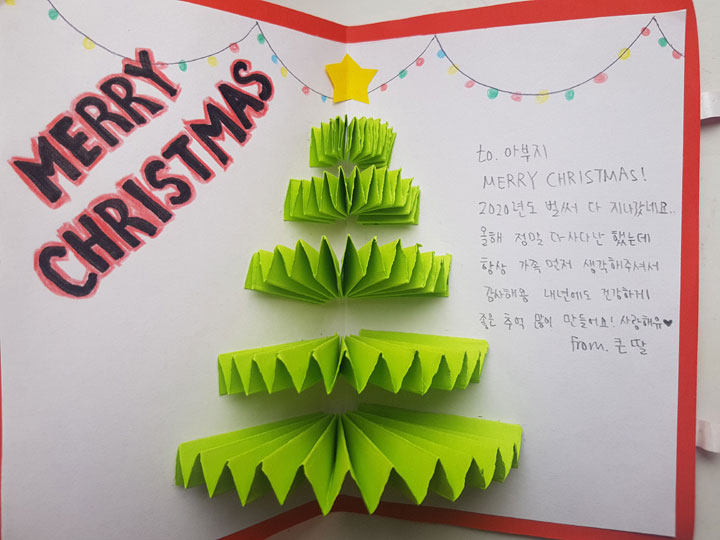 MERRY
CHRISTMAS
to. 아부지
MERRY CHRISTMAS!
2020년도 벌써 다 지나갔네요..
올해 정말 다사다난 했는데
항상 가족 먼저 생각해주셔서
감사해용 내년에도 건강하게
좋은 추억 많이 만들어요! 사랑해유♥
from. 큰 딸